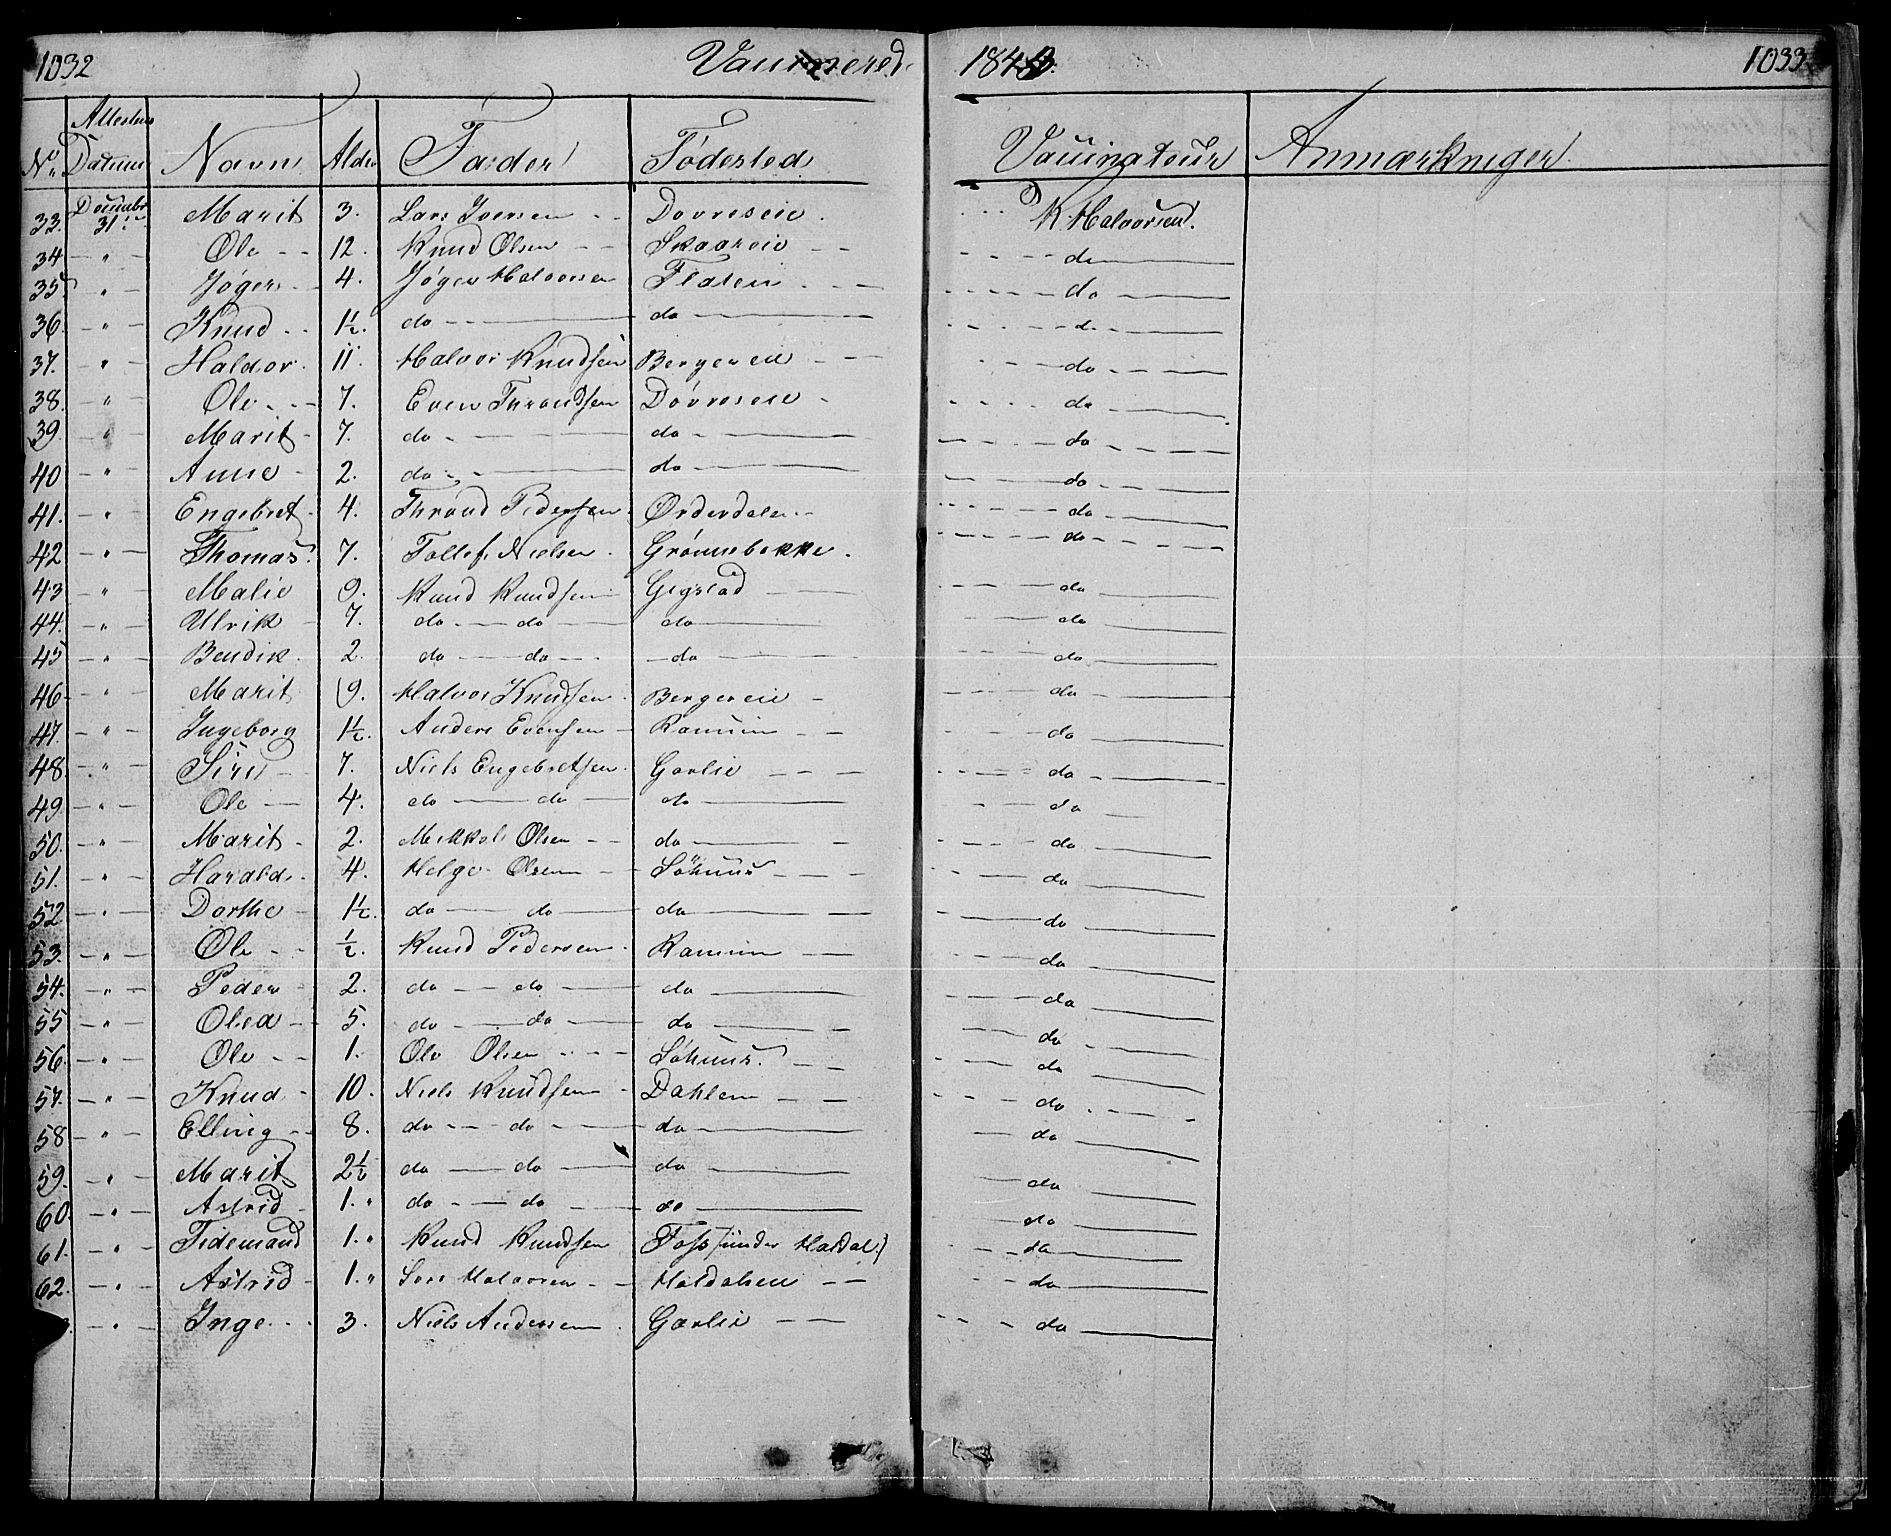 1032 Vaccinerede 1843. 1033
Attestens
No Datum Navn Alder Fader Fødested Vaccinateur Anmærkninger
33. Decembr 31te Marit 3. Lars Iversen - - Dovreseie . K. Halvorsen.
34 - " - Ole - - 12. Knud Olsen - - Skaareie - - do
35 " - Jøger - - 4. Jøger Halvorsen Flaten - - - do
36. - " - Knud - - 1½. do do do
37. - " - Haldor. 11. Halvor Knudsen Bergereie - - do
38. - " - Ole - - - 7. Even Throndsen Dovreseie - do
39. " - Marit - 7. do do do
40 - " - Anne - 2. do do do
41. - " - Engebret - 4. Thrond Pedersen Ørderdalen - do
42 - " - Thomas. 7. Tollef Nielsen - Grønnebekke . do
43 - " - Malie 9. Knud Knudsen Gigstad do
44. - " - Ulrik - 7. do - do do do
45 - " - Bendik. 2. do - do - do do
46 - " - Marit 9. Halvor Knudsen - Bergereie - do
47. - " - Ingeborg 1½. Anders Evensen - Ramün - - do
48. - " - Siri - 7. Niels Engebretsen - Garlie - - - do
49. - " - Ole - 4. do - do do do
50. - " - Marit - 2. Mikkel Olsen - - do - do
51. - " - Harald - 4. Helge Olsen - do
52 - " - Dorthe - 1½. do - do do do
53. - " - Ole - - ½. Knud Pedersen - Ramün - do
54. - " - Peder - 2. do - do do do
55 - " - Olea - 5. do - do do do
56. - " - Ole - - 1. Ole Olsen - - - do
57. - " - Knud - 10. Niels Knudsen - Dahlen - - do
58 - " - Elling - - 8. do - - do do do
59. - " - Marit 2½ do - do do do
60. - " - Astrid - 1. " do - do do do
61. - " - Tidemand 1. " Knud Knudsen Foss /: under Haldal :/ do
62. - " - Astrid - 1. " Halvorsen - - Haldalseie - - do
- " - Inge - - 3. Niels Andersen . Garlie - - do